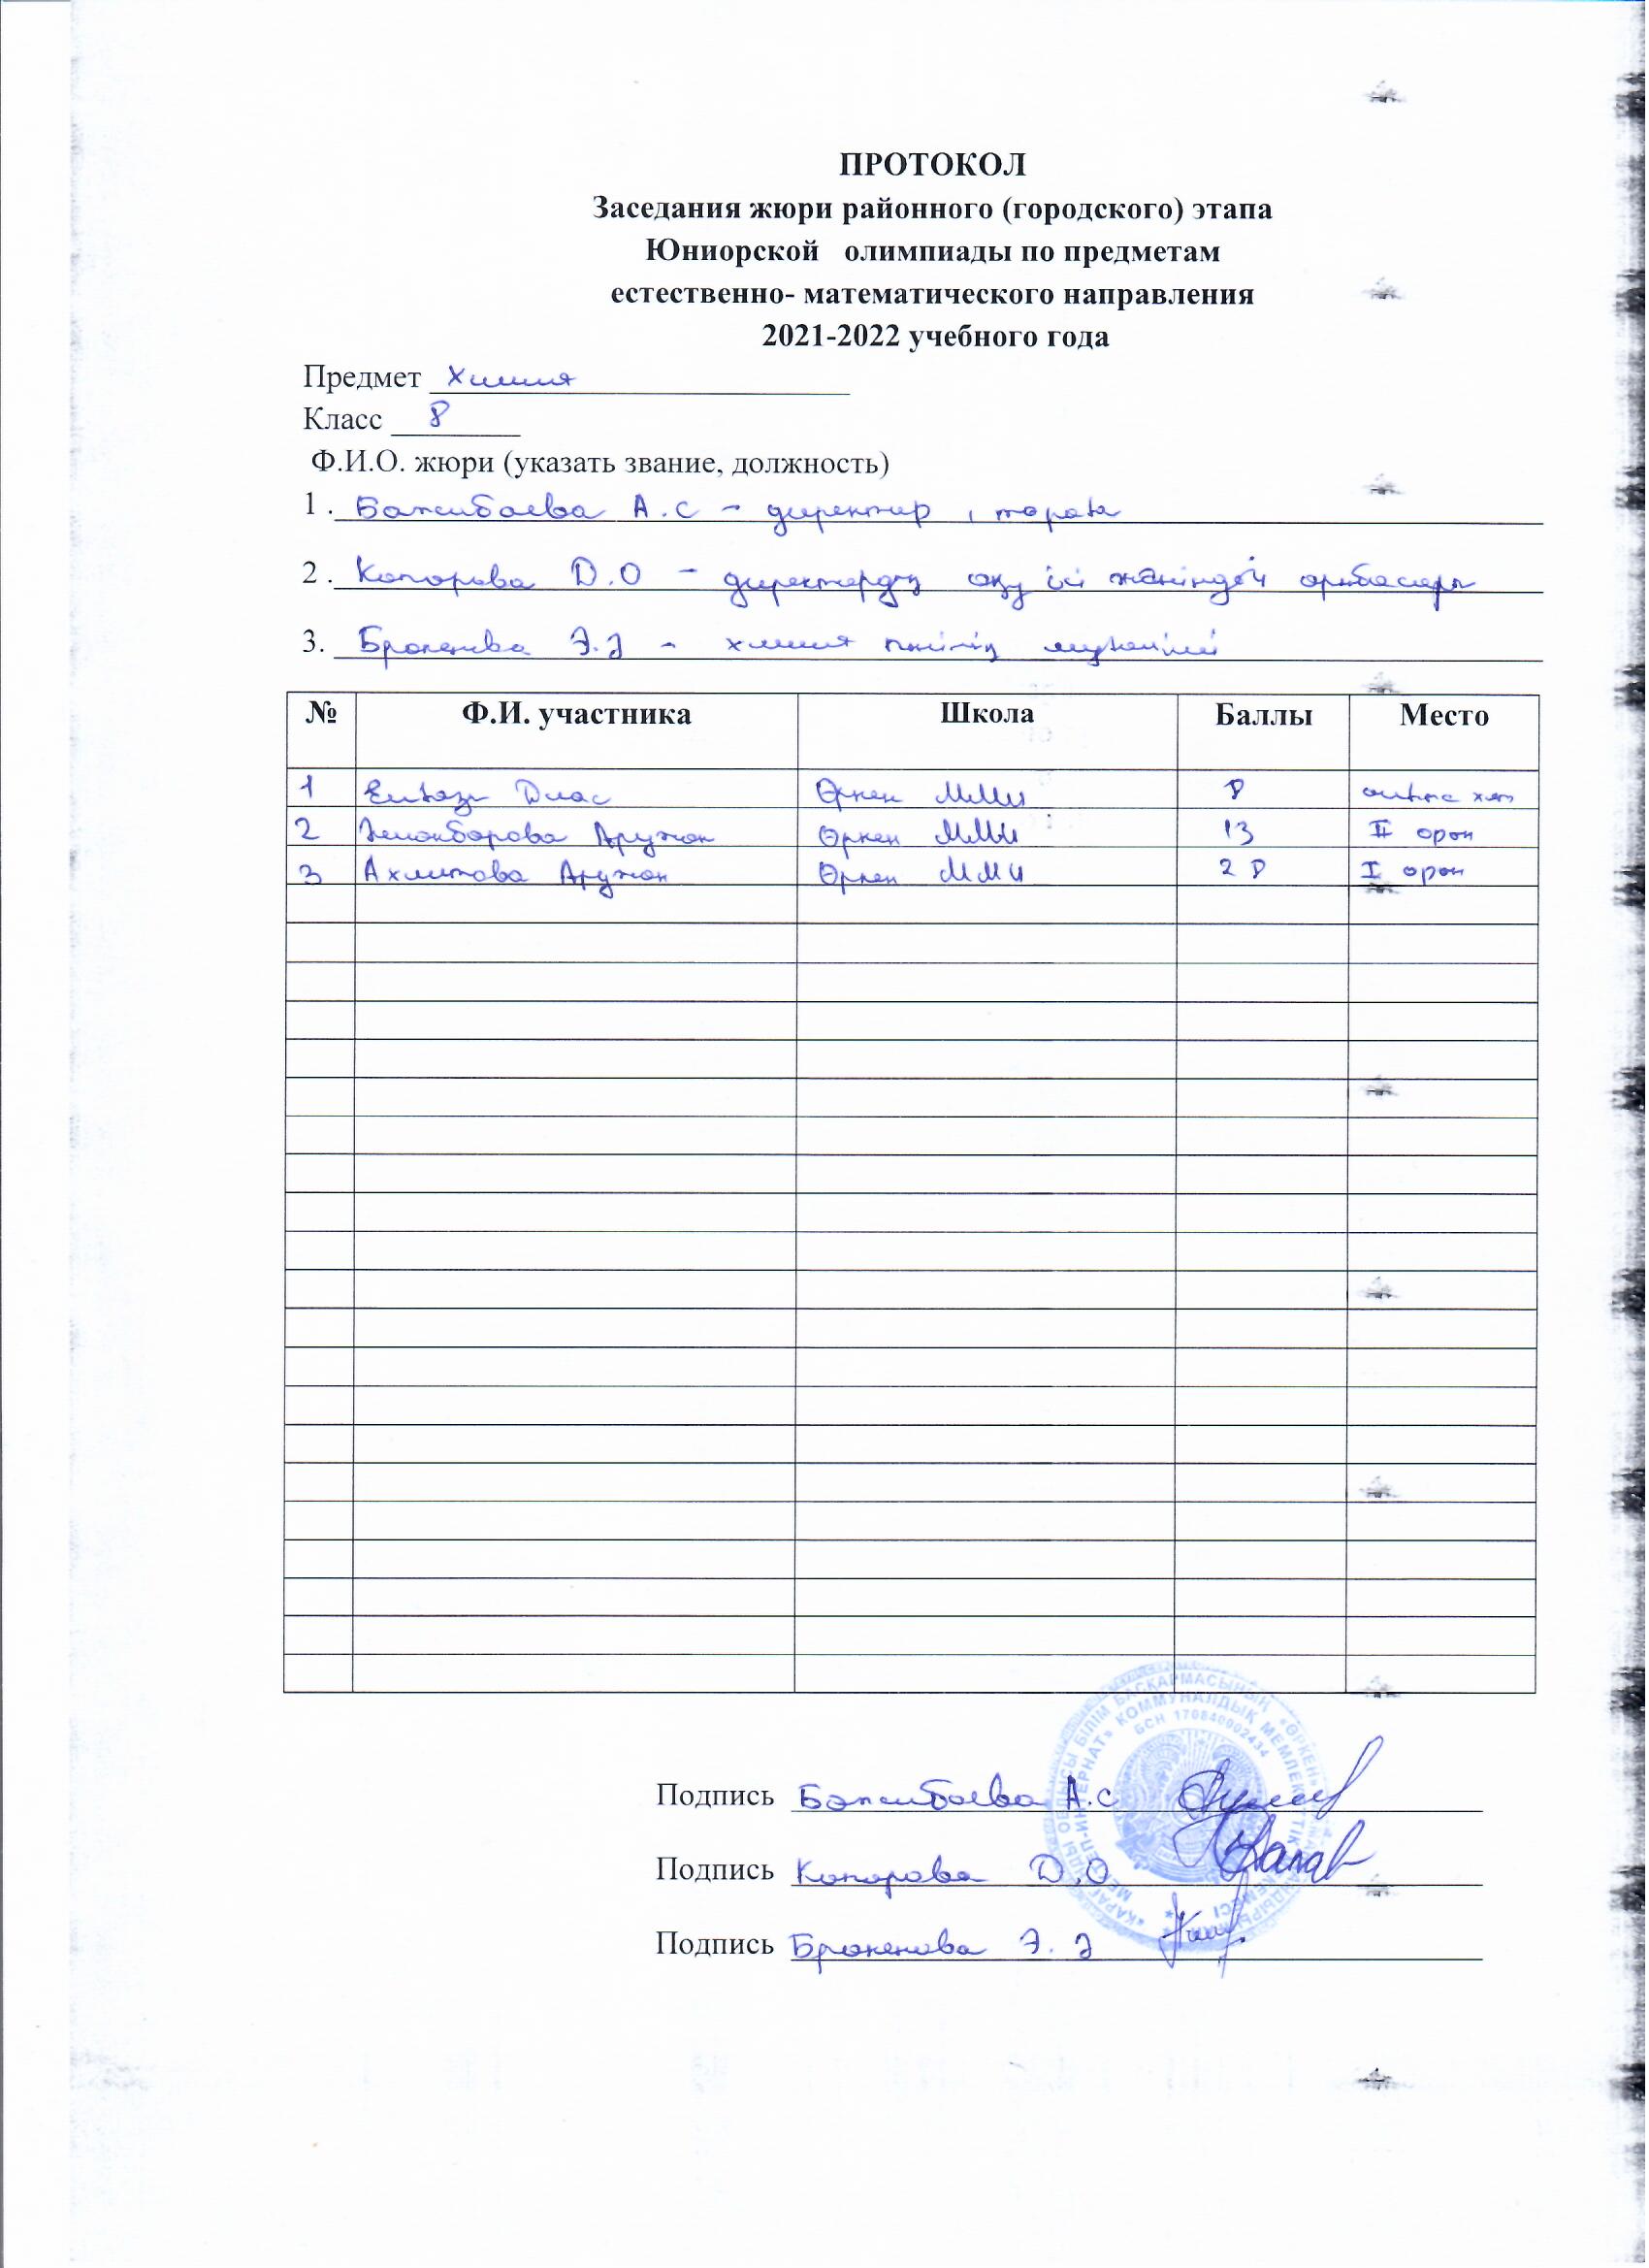 ПРОТОКОЛ
Заседания жюри районного (городского) этапа
Юниорской олимпиады по предметам
естественно- математического направления
2021-2022 учебного года
Предмет Химия
Класс 8
Ф.И.О. жюри (указать звание, должность)
1 . Бажибаева А.С - директор , төраға
2 . Капарова Д.О - директордың оқу ісі жөніндегі орынбасары
3. Э.З - химия пәнінің мұғалімі
№ Ф.И. участника Школа Баллы Место
1 Диас Өркен ММИ 8
2 Аружан Өркен ММИ 13 II орын
3 Ахметова Аружан Өркен ММИ 28 I орын
Подпись Бажибаева А.С
Подпись Капарова Д.О
Подпись Э.З
БІЛІМ БАСҚАРМАСЫНЫҢ «ӨРКЕН»
МЕКТЕП-ИНТЕРНАТ» КОММУНАЛДЫҚ МЕМЛЕКЕТТІК МЕКЕМЕСІ
БСН 170840002434